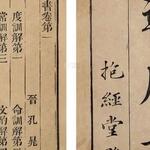 抱經堂
書卷第一
晉 孔晁
度訓解第一 命訓解
常訓解第三 文酌解